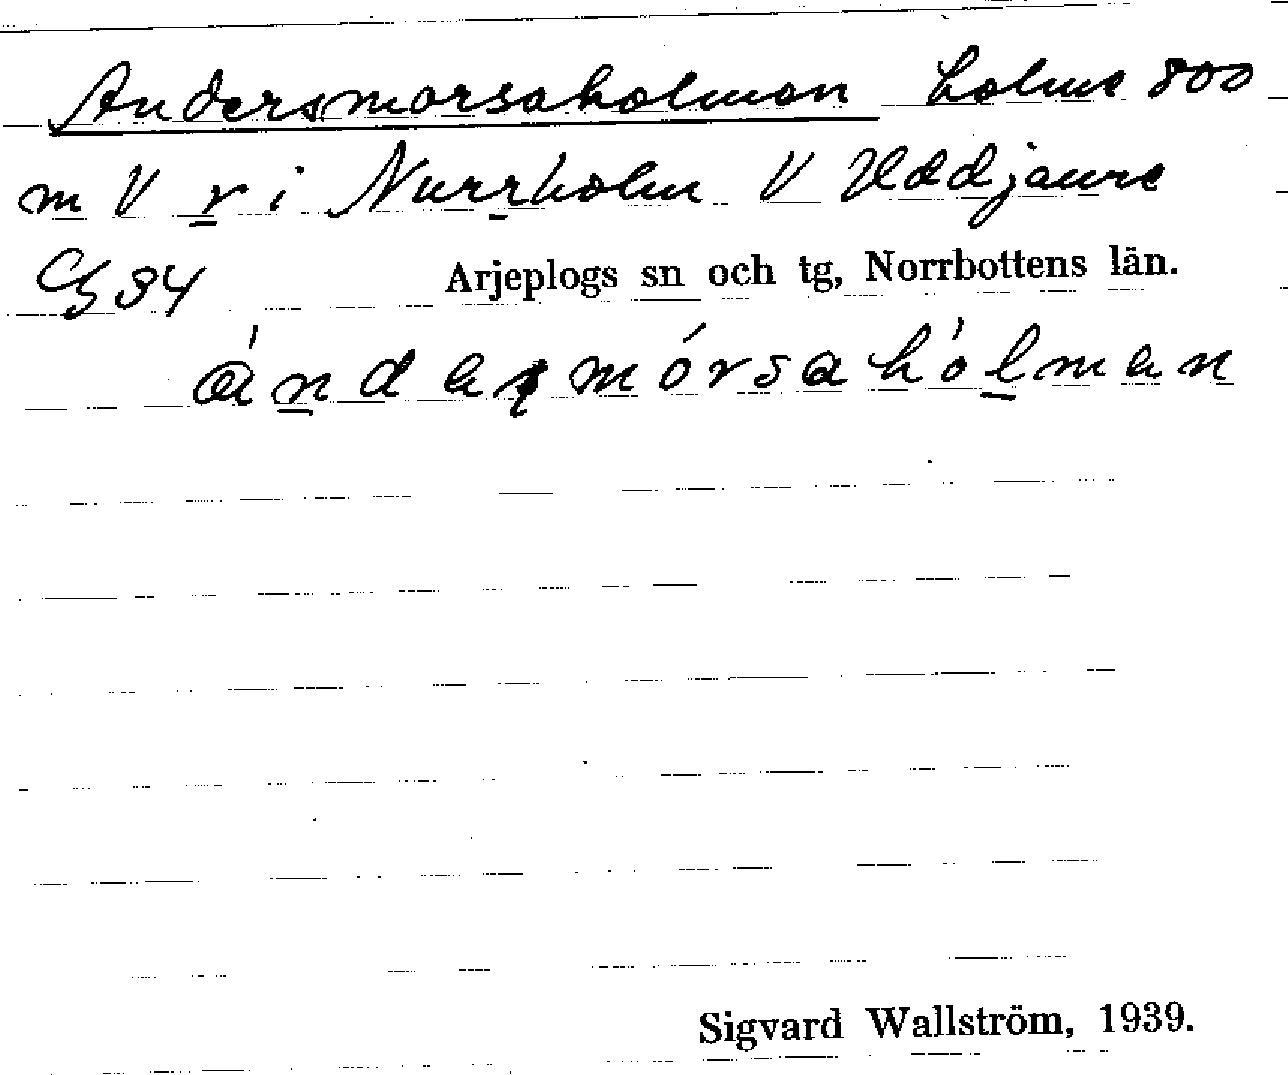 Andersmorsaholmen holme 800
m V r i Nurrholm V Uddjaure
G34
Arjeplogs sn och tg, Norrbottens län.
ándaṣmórsahólman
Sigvard Wallström, 1939.